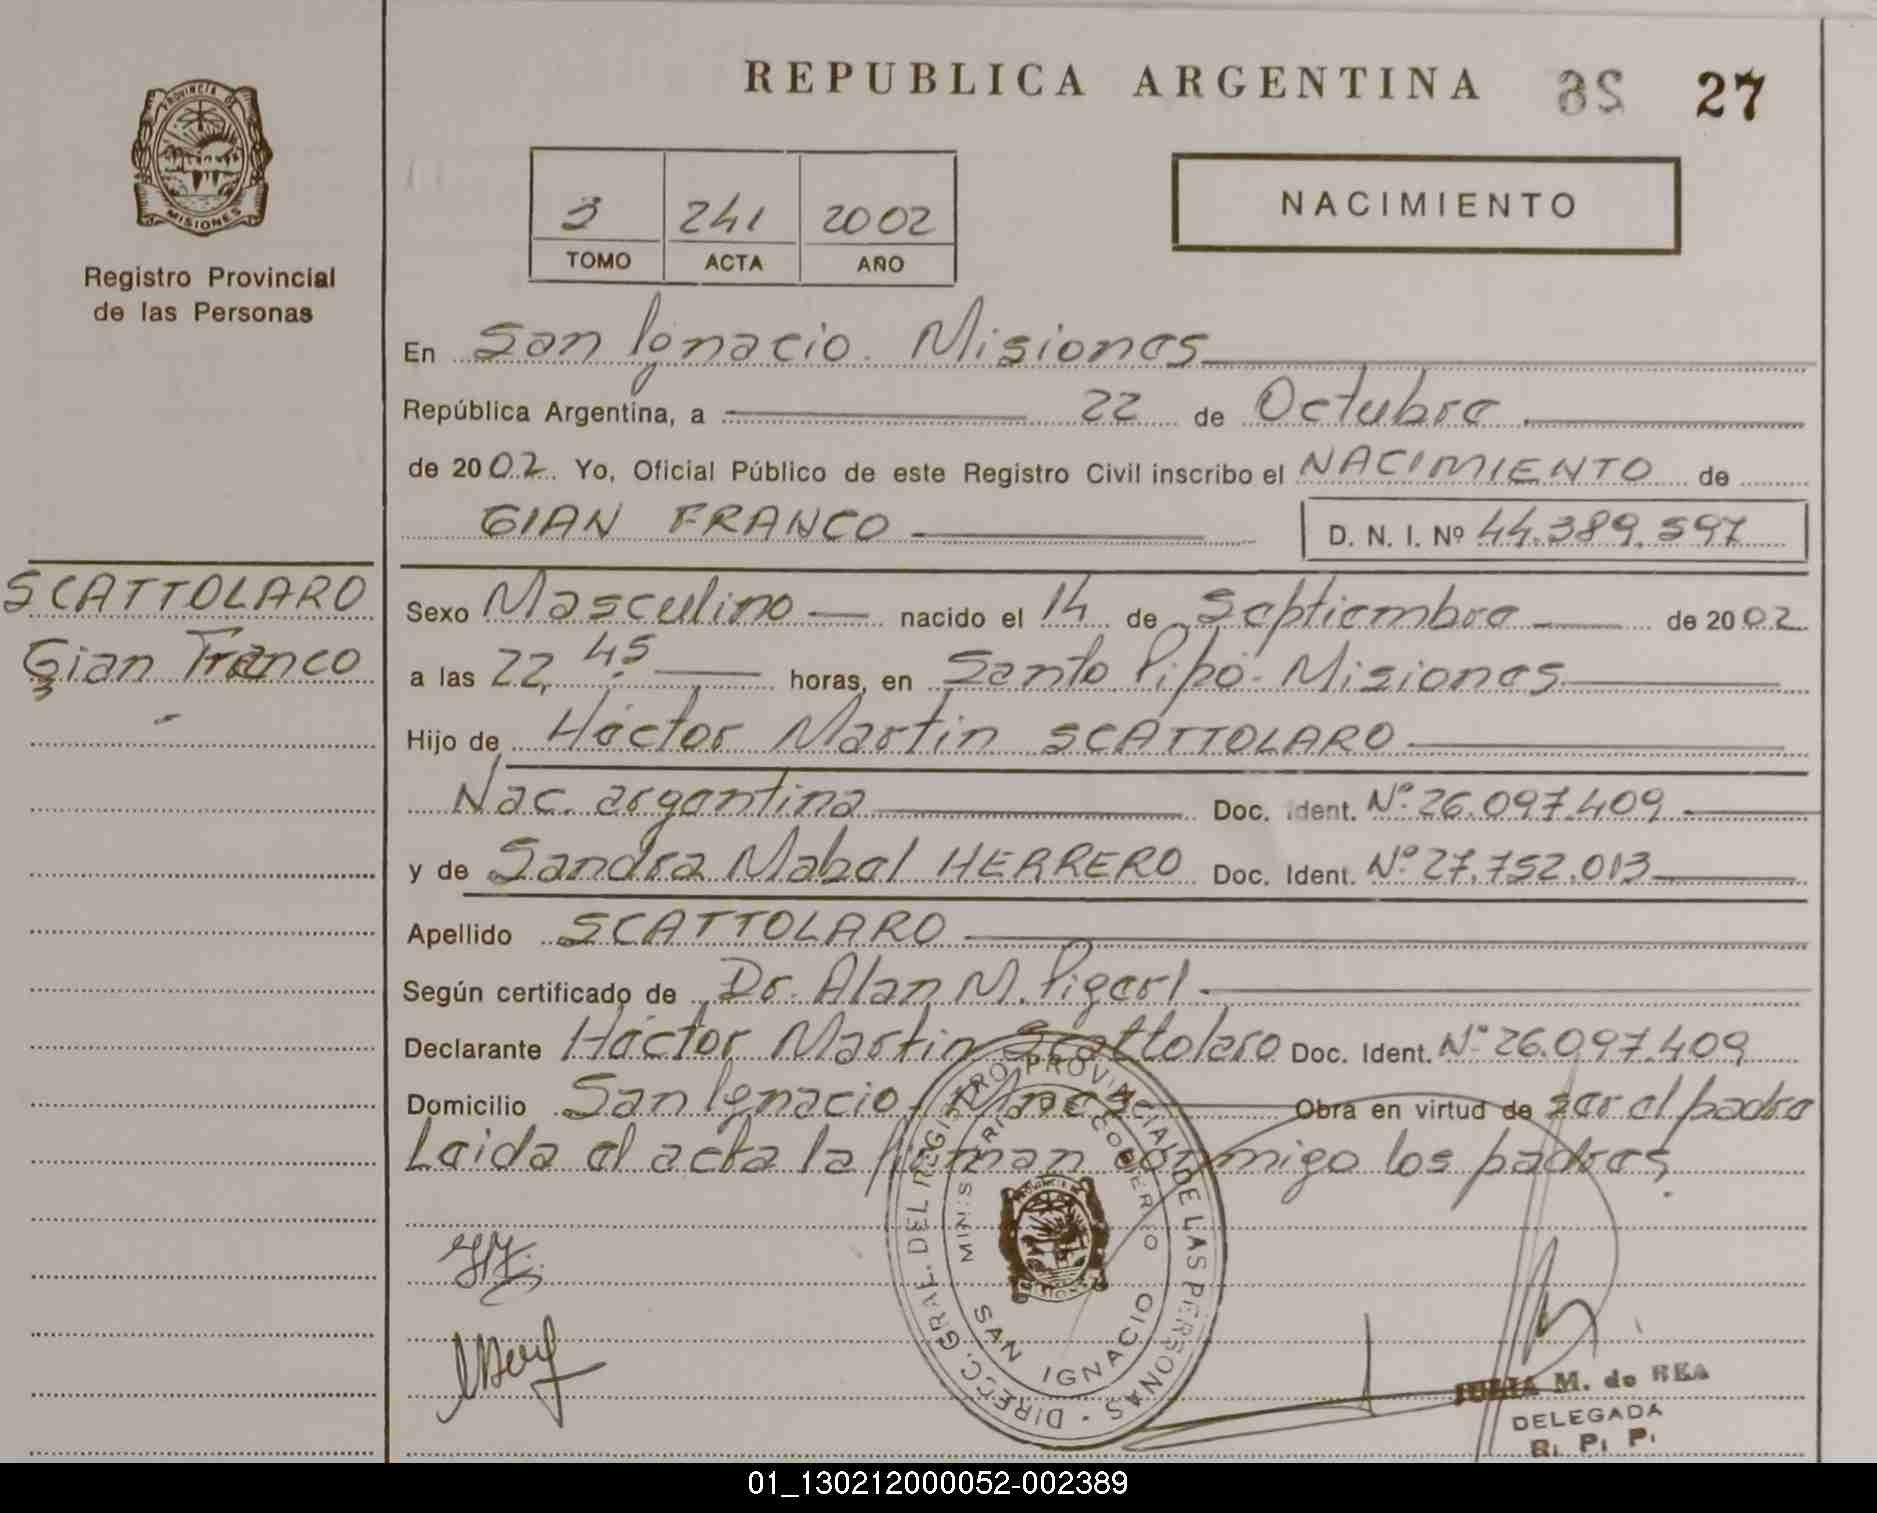 REPUBLICA ARGENTINA 26 27
PROVINCIA DE
MISIONES
Registro Provincial
de las Personas
3 241 2002
TOMO ACTA AÑO
NACIMIENTO
En San Ignacio. Misiones
República Argentina, a 22 de Octubre
de 2002. Yo, Oficial Público de este Registro Civil inscribo el NACIMIENTO de
GIAN FRANCO D. N. I. Nº 44.389.597
SCATTOLARO
Gian Franco
Sexo Masculino nacido el 14 de Septiembre de 2002
a las 22,45 horas, en Santo Pipó - Misiones
Hijo de Héctor Martin SCATTOLARO
Nac. argentina Doc. Ident. Nº 26.097.409
y de Sandra Mabel HERRERO Doc. Ident. Nº 27.752.013
Apellido SCATTOLARO
Según certificado de Dr. Alan M. Pigerl
Declarante Héctor Martin Scattolaro Doc. Ident. Nº 26.097.409
Domicilio San Ignacio, Mnes Obra en virtud de ser el padre
Leida el acta la firman conmigo los padres.
DIRECC. GRAL. DEL REGISTRO PROVINCIAL DE LAS PERSONAS
MINISTERIO DE GOBIERNO
SAN IGNACIO
JULIA M. de REA
DELEGADA
R. P. P.
01_130212000052-002389